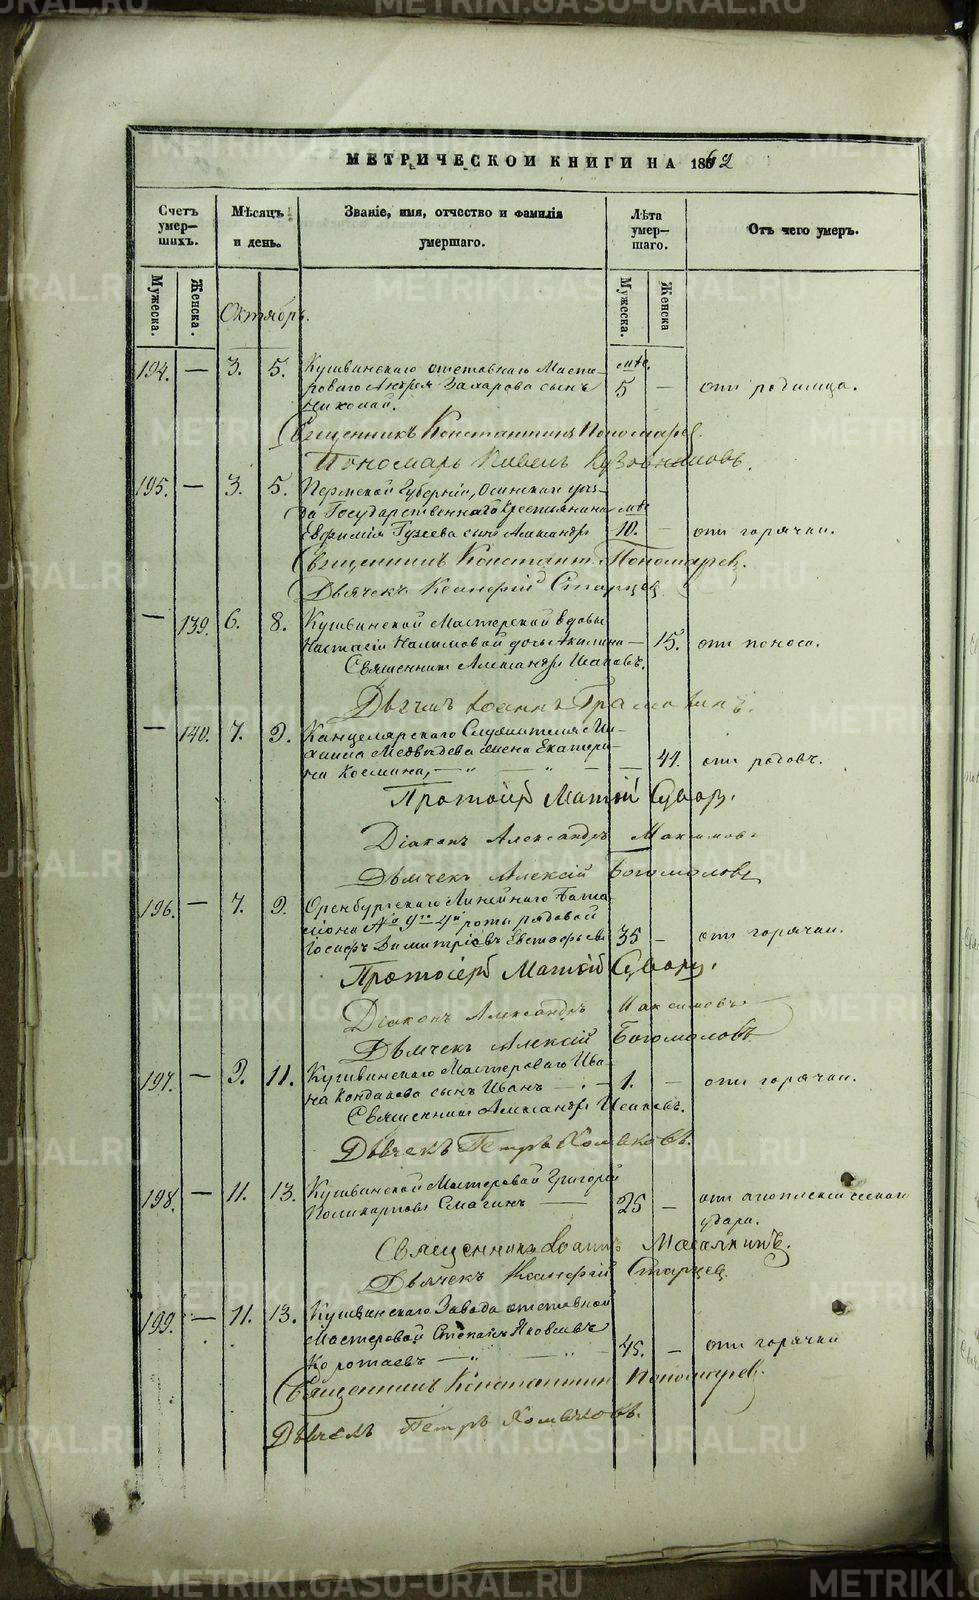 МЕТРИЧЕСКОЙ КНИГИ НА 1862
Счетъ умер—шихъ.
Мѣсяцъ и день.
Званіе, имя, отчество и фамилія умершаго.
Лѣта умер—шаго.
Отъ чего умеръ.
Мужеска. Женска. Мужеска. Женска
Октябрь.
194. — 3. 5. Кушвинскаго отставнаго Масте-
роваго Андрея Захарова сынъ 5 — отъ родимца.
Николай.
Священникъ Константинъ Пономарев.
Пономарь Павелъ
195. — 3. 5. Пермской Губерніи, Осинскаго уѣз-
да Государственнаго Крестьянина
Евфимія сынъ Александръ 10. — отъ горячки.
Священникъ Констант. Пономарев.
Дьячекъ Старцев
— 139. 6. 8. Кушвинской Мастерской вдовы
Настасіи Налимовой дочь Акилина — 15. отъ поноса.
Священникъ Александръ Исаковъ.
Дьячекъ Іоаннъ
— 140. 7. 9. Канцелярскаго Служителя Ми-
хаила Медвѣдева жена Екатери-
на Космина, — " — " — — 41. отъ родовъ.
Протоіерей Матѳій
Діаконъ Александръ Максимовъ
Дьячекъ Алексій Богомоловъ
196. — 7. 9. Оренбургскаго Линейнаго Бата-
ліона № 9го 4й роты рядовой
Іосифъ Димитріевъ Евстафьевъ 35 — отъ горячки.
Протоіерей Матѳій
Діаконъ Александръ Максимовъ
Дьячекъ Алексій Богомоловъ
197. — 9. 11. Кушвинскаго Мастероваго Ива-
на Кондакова сынъ Иванъ — 1. — отъ горячки.
Священникъ Александръ Исаковъ.
Дьячекъ Петръ Хомяковъ.
198. — 11. 13. Кушвинской Мастеровой Григорій
Поликарповъ Смагинъ — 25 — отъ апоплексическаго
удара.
Священникъ Іоаннъ
Дьячекъ Старцев.
199. — 11. 13. Кушвинскаго Завода отставной
Мастеровой Степанъ Яковлевъ
Коротаевъ — " — " 45. — отъ горячки
Священникъ Константинъ Пономарев.
Дьячекъ Петръ Хомяковъ.
METRIKI.GASO-URAL.RU